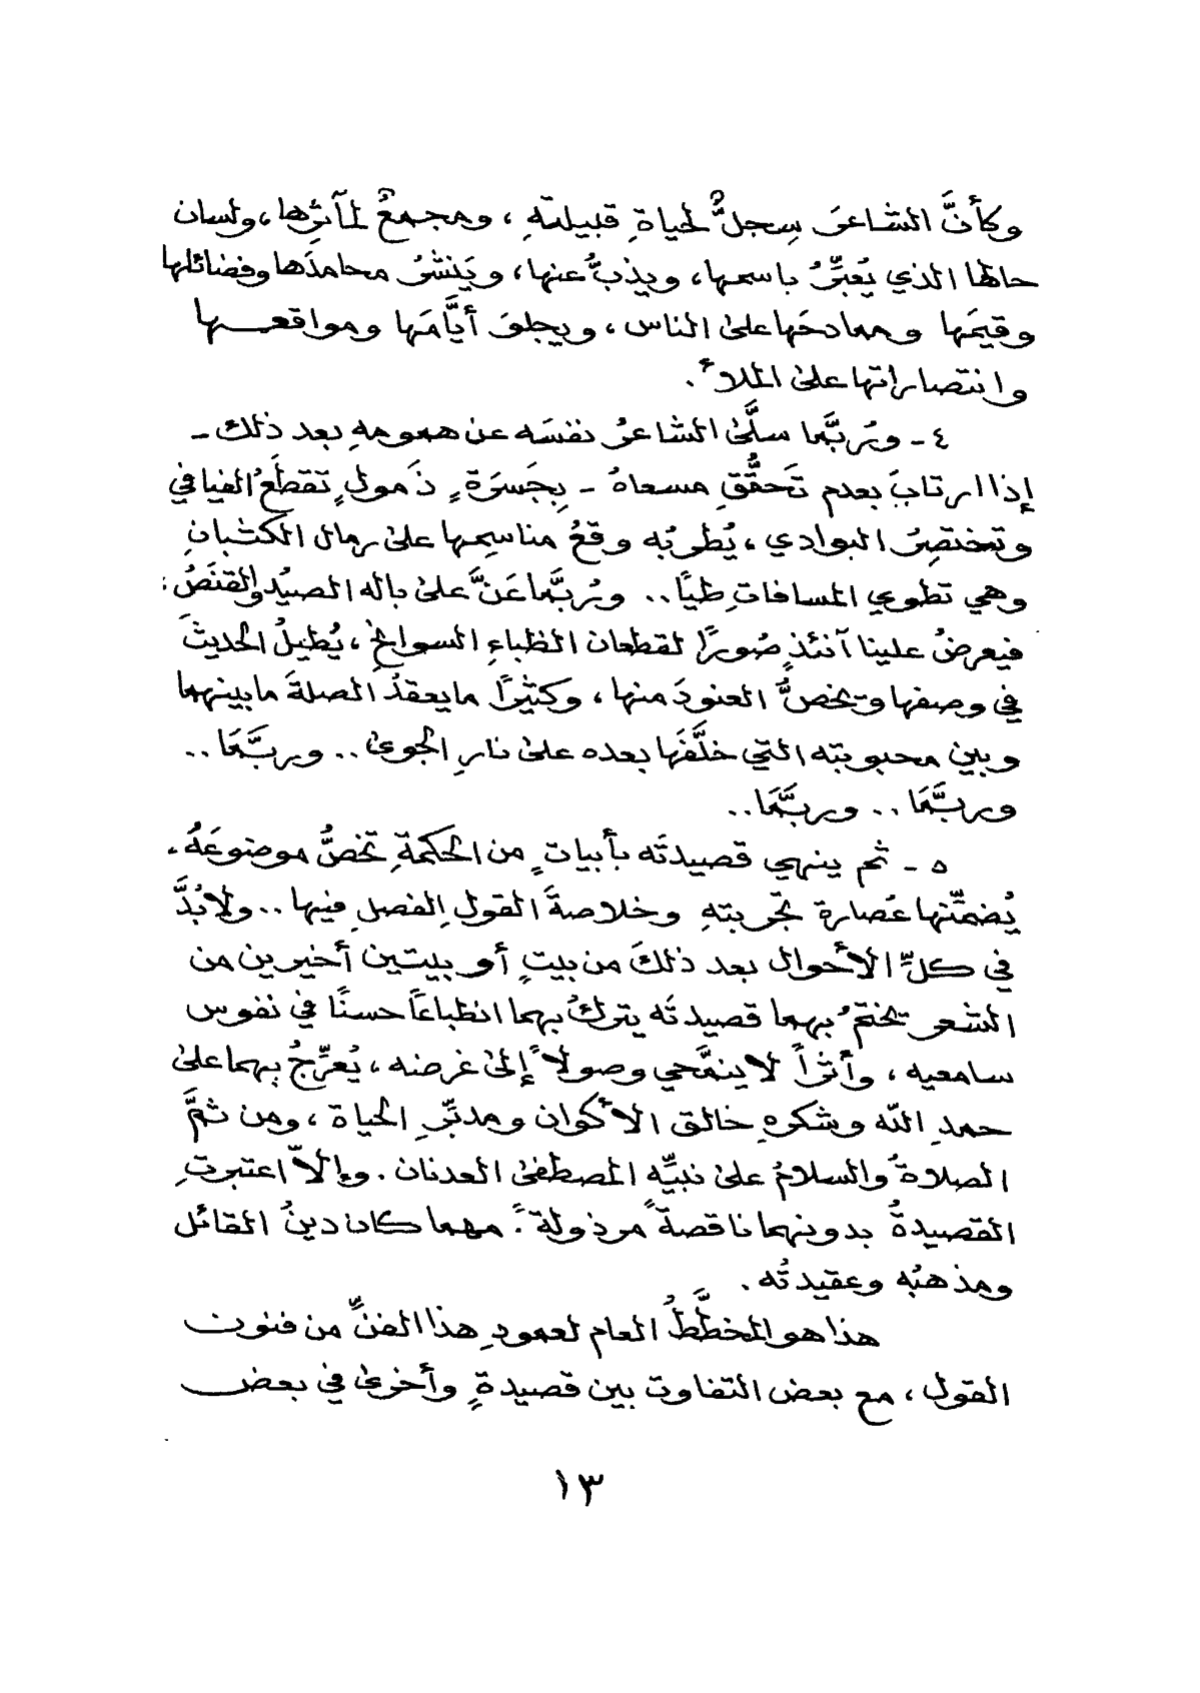 وكأنَّ الشاعرَ سِجلٌّ لحياةِ قبيلتهِ ، ومجمعٌ لمآثرِها ، ولسان
حالها الذي يُعبِّرُ باسمها ، ويذبُّ عنها ، ويَنشرُ محامدَها وفضائلها
وقيمَها ومعادحَها على الناس ، ويجلو أيَّامَها ومواقعـها
وانتصاراتها على الملأ .
٤ - ورُبَّما سلَّى الشاعرُ نفسَه عن همومهِ بعد ذلك -
إذا ارتابَ بعدم تَحقُّقِ مسعاهُ - بِجَسرَةٍ ذَمولٍ تقطَعُ الفيافي
وتختصِرُ البوادي ، يُطربُه وقعُ مناسِمها على رمال الكثبانِ
وهي تطوي المسافاتِ طيًا .. ورُبَّما عَنَّ على باله الصيدُ والقنَصُ ؛
فيعرضُ علينا آنئذٍ صُورًا لقطعان الظباءِ السوانحِ ، يُطيلُ الحديثَ
في وصفها ويخصُّ العنودَ منها ، وكثيرًا ما يعقدُ الصلةَ ما بينهما
وبين محبوبته التي خلَّفَها بعده على نارِ الجوى .. وربَّمَا ..
وربَّمَا .. وربَّمَا ..
٥ - ثم ينهي قصيدتَه بأبياتٍ من الحكمةِ تخصُّ موضوعَهُ .
يُضمِّنها عُصارة تجربتهِ وخلاصةَ القولِ الفصلِ فيها .. ولابُدَّ
في كلِّ الأحوال بعد ذلكَ من بيتٍ أو بيتين أخيرين من
الشعر تختمُ بهما قصيدتَه يتركُ بهما انطباعاً حسنًا في نفوس
سامعيه ، وأثراً لا ينمَّحي وصولاً إلى غرضه ، يُعرِّجُ بهما على
حمدِ الله وشكرهِ خالق الأكوان ومدبِّرِ الحياة ، ومن ثمَّ
الصلاةُ والسلامُ على نبيِّه المصطفى العدنان . وإلاّ اعتبرتِ
القصيدةُ بدونهما ناقصةً مرذولةً ؛ مهما كان دينُ القائل
ومذهبُه وعقيدتُه .
هذا هو المخطَّطُ العام لعمودِ هذا الفنِّ من فنون
القول ، مع بعض التفاوت بين قصيدةٍ وأخرى في بعض
١٣